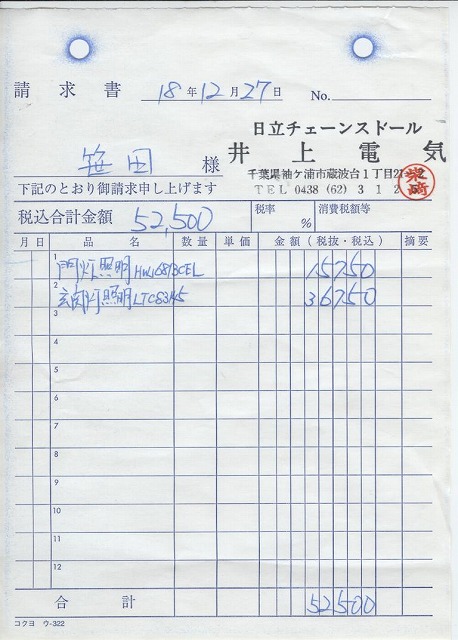 請求書 18年12月27日 No.
日立チェーンストール
井上電気
笹田 様
千葉県袖ケ浦市蔵波台1丁目
TEL 0438 (62) 312
下記のとおり御請求申し上げます
税込合計金額 52,500 税率 % 消費税額等
月 日 品名 数量 単価 金額(税抜・税込) 摘要
1 門灯照明 15750
2 玄関灯照明 36750
3
4
5
6
7
8
9
10
11
12
合計 52500
コクヨ ウ-322